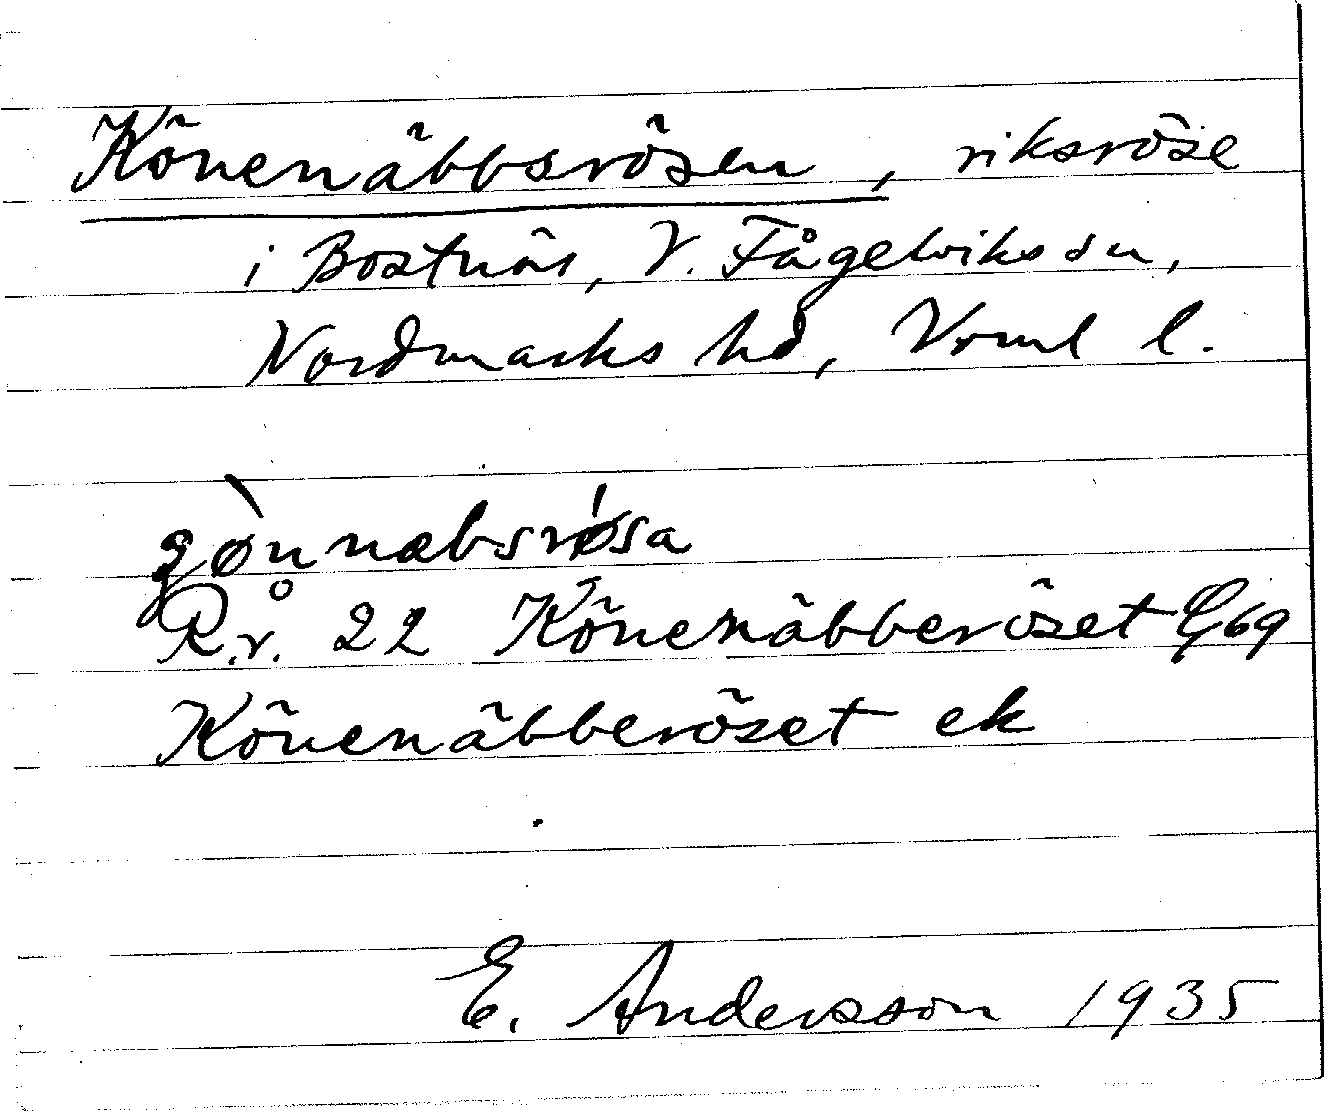 Könenäbbsrösen, riksröse
i Bostnäs, V. Fågelviks sn,
Nordmarks hd, Vrml l.
gònnabsrøsa
R.r. 22 Könenäbberöset G69
Könenäbberöset ek
E. Andersson 1935